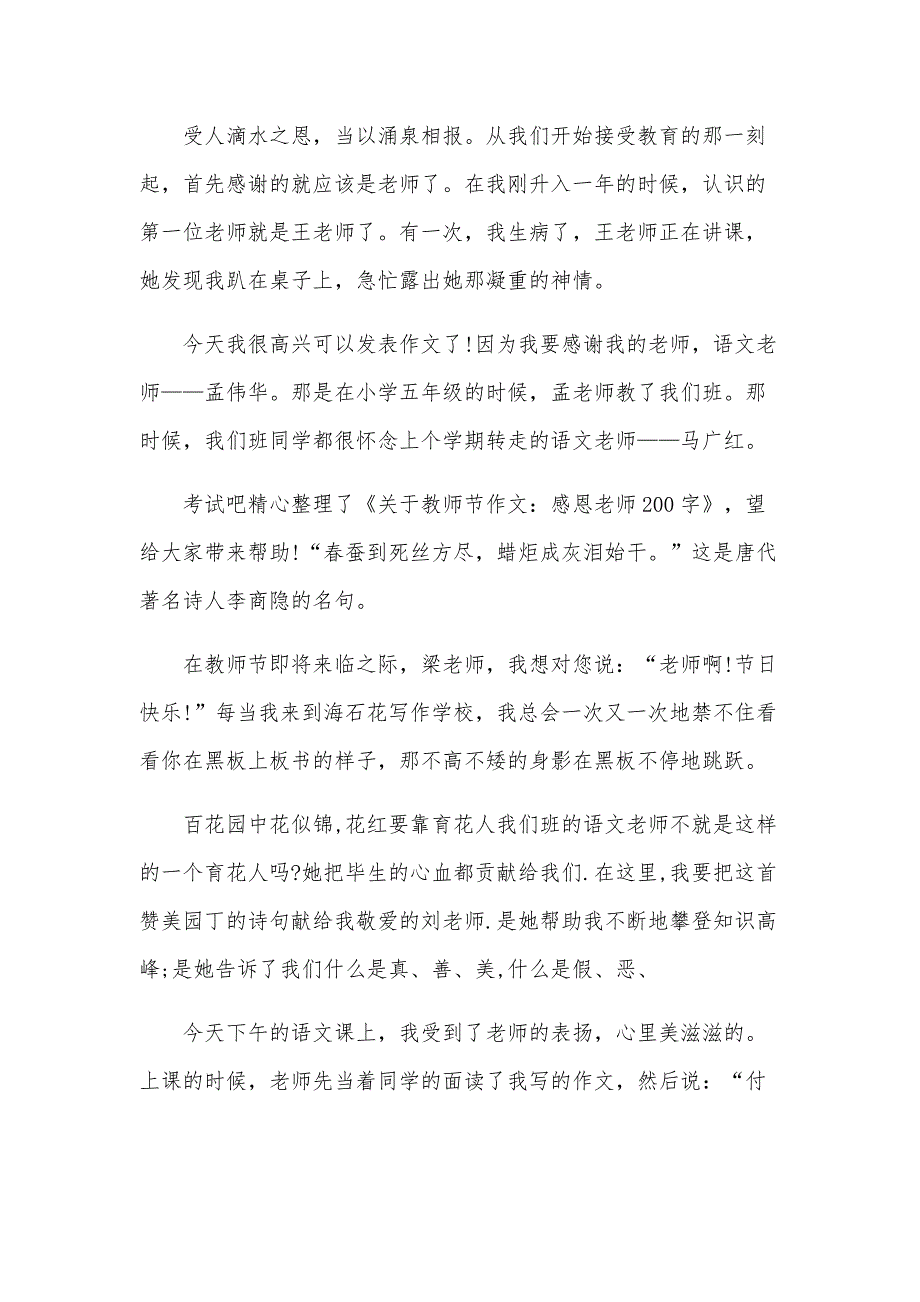 受人滴水之恩，当以涌泉相报。从我们开始接受教育的那一刻
起，首先感谢的就应该是老师了。在我刚升入一年的时候，认识的
第一位老师就是王老师了。有一次，我生病了，王老师正在讲课，
她发现我趴在桌子上，急忙露出她那凝重的神情。
今天我很高兴可以发表作文了!因为我要感谢我的老师，语文老
师——孟伟华。那是在小学五年级的时候，孟老师教了我们班。那
时候，我们班同学都很怀念上个学期转走的语文老师——马广红。
考试吧精心整理了《关于教师节作文：感恩老师 200 字》，望
给大家带来帮助!“春蚕到死丝方尽，蜡炬成灰泪始干。”这是唐代
著名诗人李商隐的名句。
在教师节即将来临之际，梁老师，我想对您说：“老师啊!节日
快乐!”每当我来到海石花写作学校，我总会一次又一次地禁不住看
看你在黑板上板书的样子，那不高不矮的身影在黑板不停地跳跃。
百花园中花似锦,花红要靠育花人我们班的语文老师不就是这样
的一个育花人吗?她把毕生的心血都贡献给我们.在这里,我要把这首
赞美园丁的诗句献给我敬爱的刘老师.是她帮助我不断地攀登知识高
峰;是她告诉了我们什么是真、善、美,什么是假、恶、
今天下午的语文课上，我受到了老师的表扬，心里美滋滋的。
上课的时候，老师先当着同学的面读了我写的作文，然后说：“付